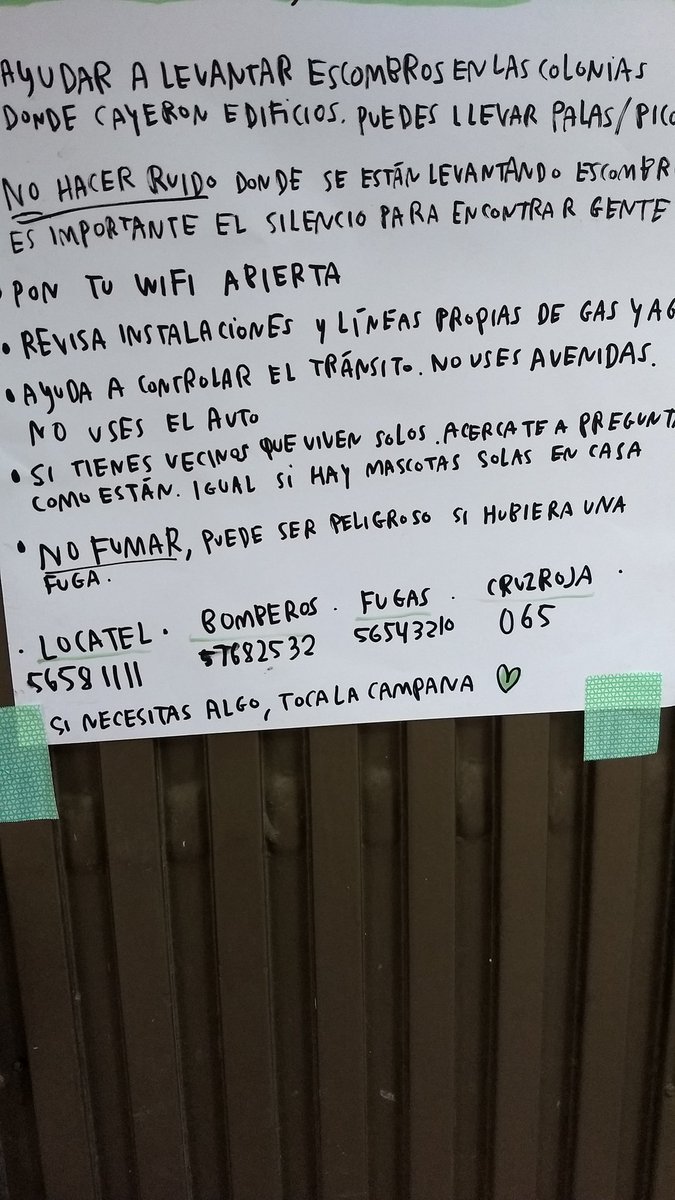 AYUDAR A LEVANTAR ESCOMBROS EN LAS COLONIAS
DONDE CAYERON EDIFICIOS. PUEDES LLEVAR PALAS/PICO
NO HACER RUIDO DONDE SE ESTÁN LEVANTANDO ESCOMBR
ES IMPORTANTE EL SILENCIO PARA ENCONTRAR GENTE
• PON TU WIFI ABIERTA
• REVISA INSTALACIONES Y LÍNEAS PROPIAS DE GAS Y AG
• AYUDA A CONTROLAR EL TRÁNSITO. NO USES AVENIDAS.
NO USES EL AUTO
• SI TIENES VECINOS QUE VIVEN SOLOS. ACERCATE A PREGUNTA
COMO ESTÁN. IGUAL SI HAY MASCOTAS SOLAS EN CASA
• NO FUMAR, PUEDE SER PELIGROSO SI HUBIERA UNA
FUGA.
· LOCATEL · BOMPEROS · FUGAS · CRUZ ROJA ·
56581111 57682532 56543210 065
SI NECESITAS ALGO, TOCA LA CAMPANA